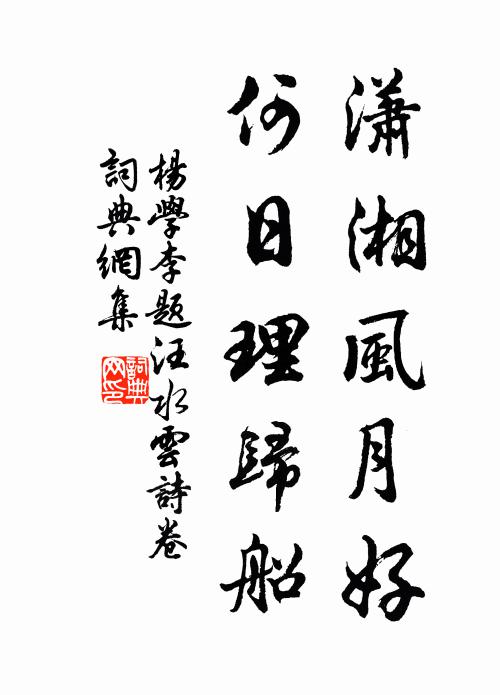 瀟湘風月好
何日理歸船
楊學李題汪水雲詩卷
詞典網集
詞典网印